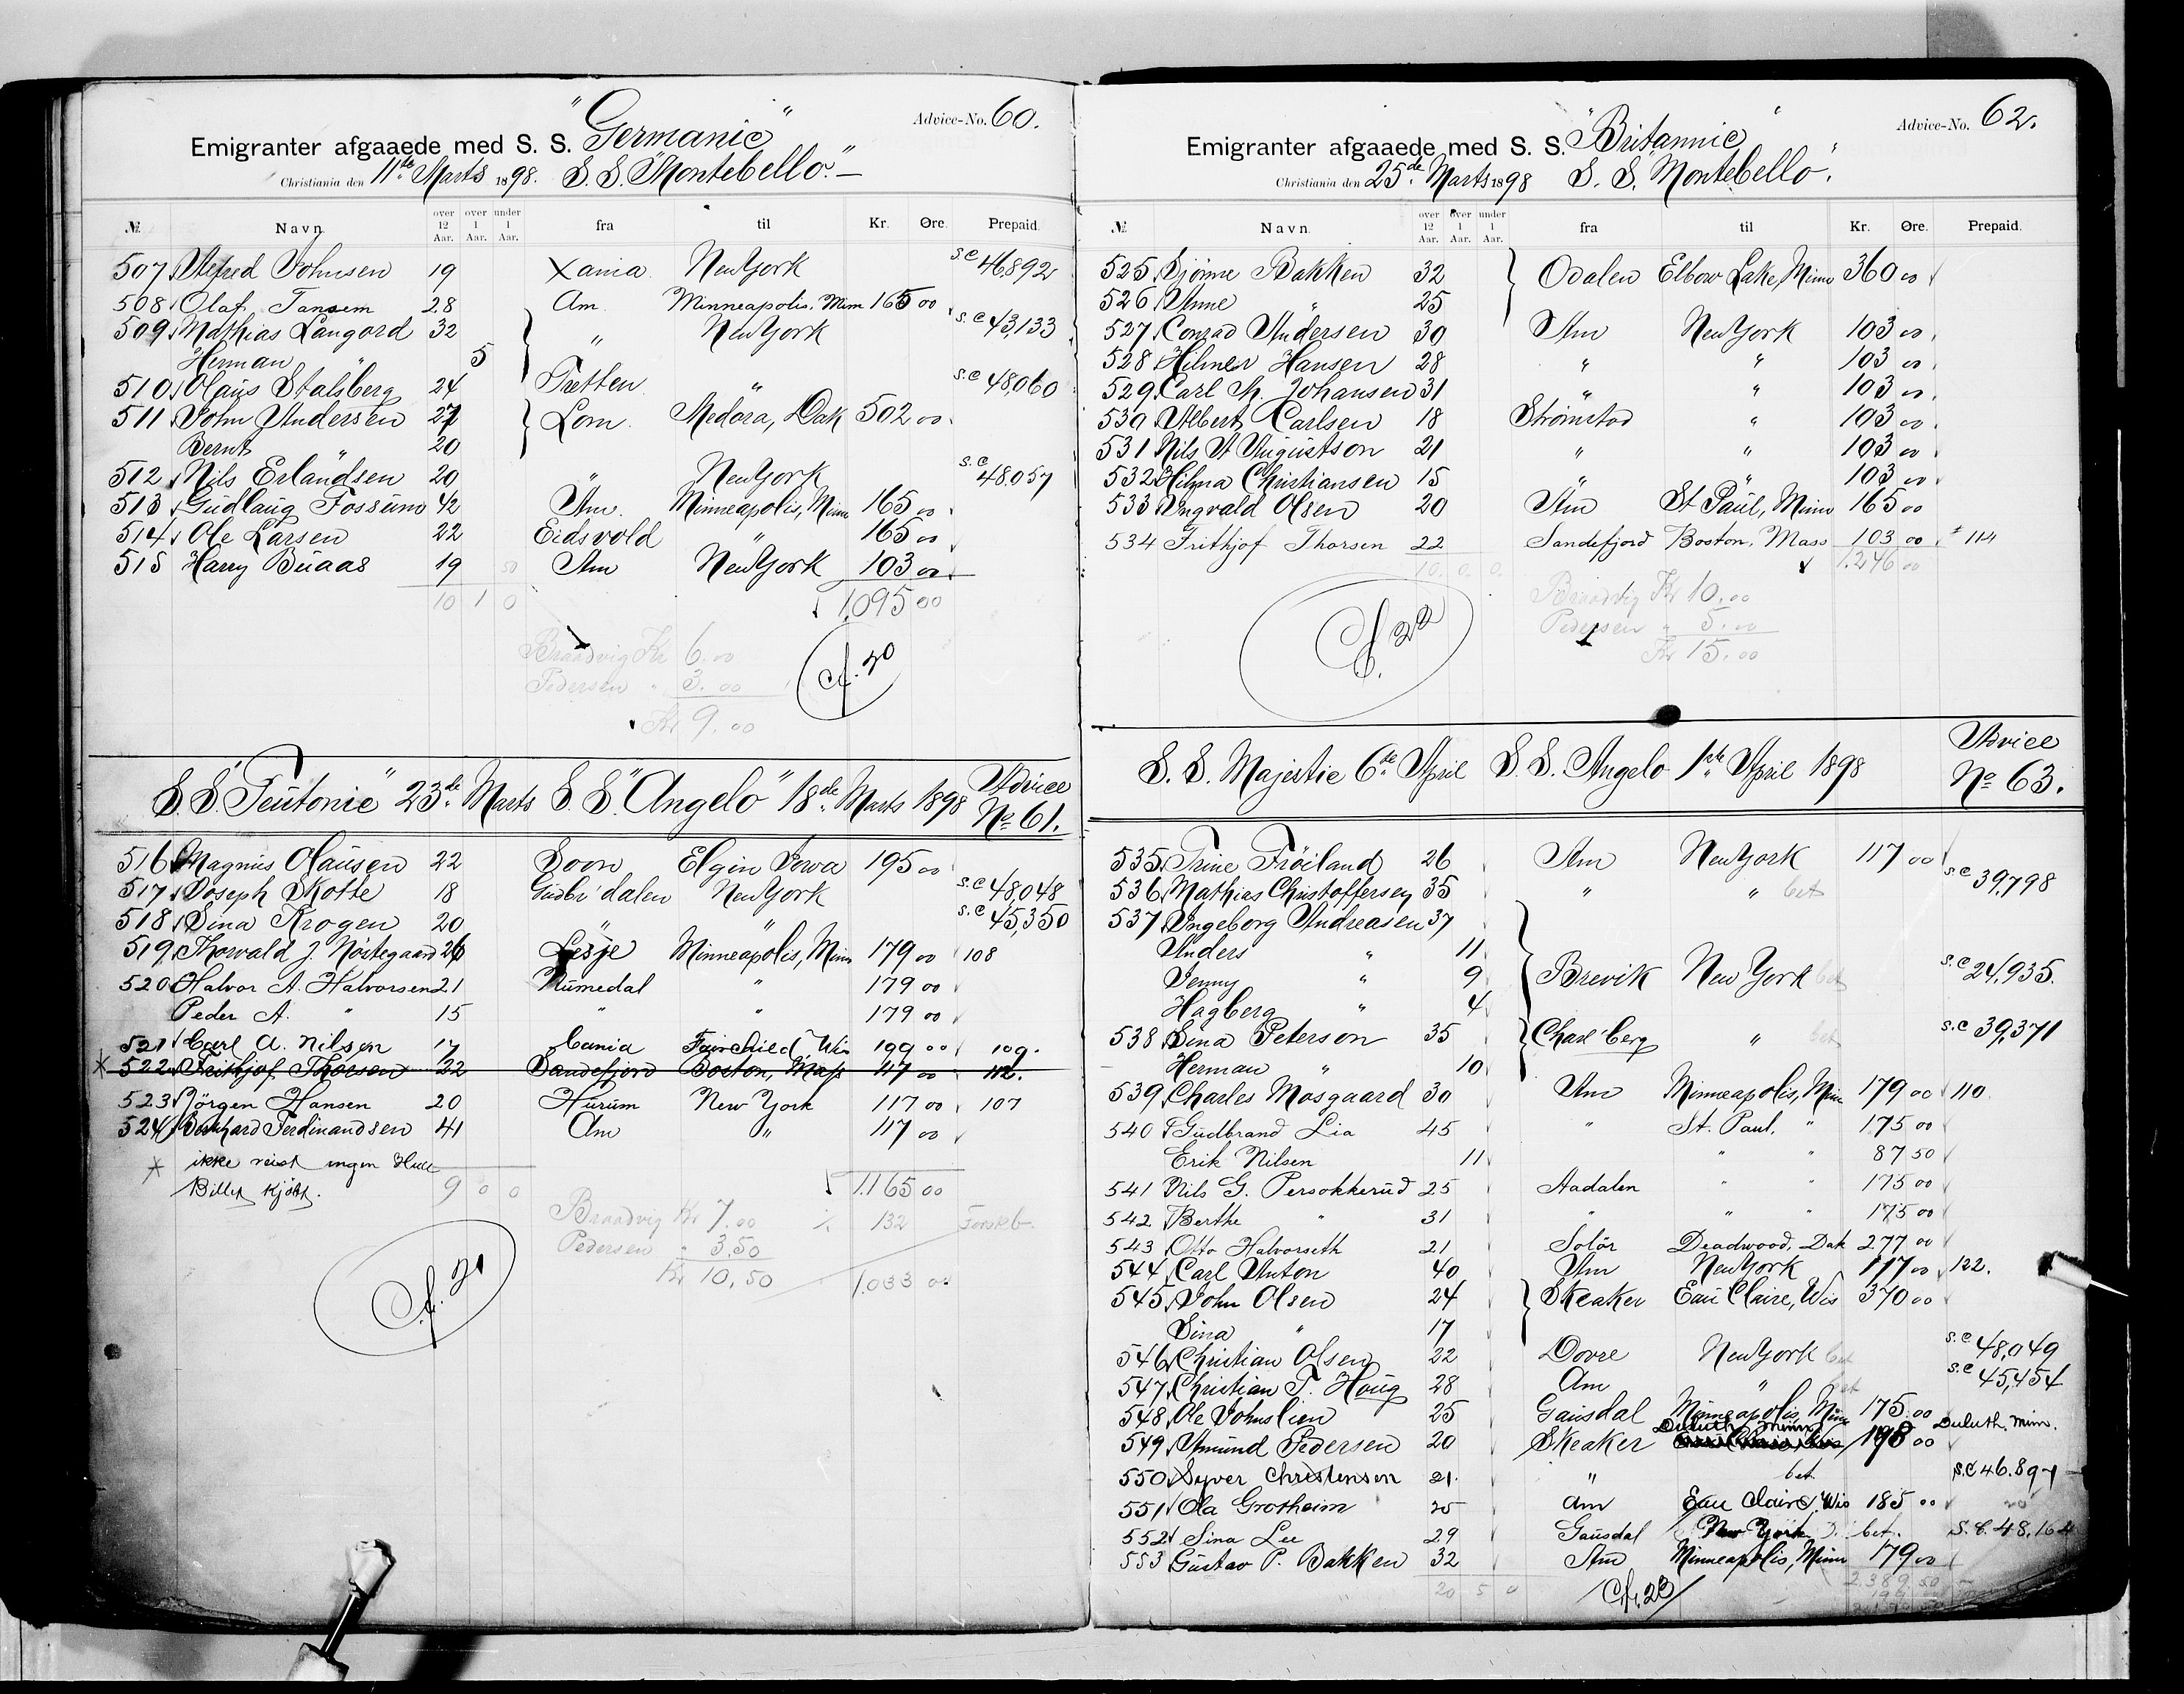 "Germanic"
Advice-No. 60.
Emigranter afgaaede med S. S.
Christiania den 11te Marts 1898. S. S. "Montebello."
№ Navn over 12 Aar. over 1 Aar. under 1 Aar. fra til Kr. Øre. Prepaid.
507 Alfred Johnsen 19 Xania New York S.C 46892
508 Olaf Tansem 28 Am Minneapolis, Minn 165 00
509 Mathias Langord 32 " New York S.C 43,133
Herman " 5
510 Olaus Stalsberg 24 Tretten " S.C 48,060
511 John Andersen 27 Lom Medora, Dak 502 00
Bernt " 20
512 Nils Erlandsen 20 " New York S.C 48.057
513 Gudlaug Fossum 42 Am. Minneapolis, Minn 165 00
514 Ole Larsen 22 Eidsvold " 165 00
515 Harry Buaas 19 Am New York 103 00
10 1 0 1,095 00
Braadvig Kr 6.00
Pedersen " 3.00
Kr 9.00
S.S. "Teutonic" 23de Marts S.S. "Angelo" 18de Marts 1898 Advice No 61.
516 Magnus Olausen 22 Soon Elgin Iowa 195 00
517 Joseph Skotte 18 Gudbr'dalen New York S.C 48,048
518 Sina Krogen 20 " " S.C 45,350
519 Thorvald J. Nöstegaard 26 Lesje Minneapolis, Minn 179 00 108
520 Halvor A. Halvorsen 21 Numedal " 179 00
Peder A. " 15 " " 179 00
521 Carl A. Nilsen 17 Cania Fairchild, Wis 199 00 109.
* 522 Frithjof Thorsen 22 Sandefjord Boston, Mass 117 00 112.
523 Jörgen Hansen 20 Hurum New York 117 00 107
524 Ferdinandsen 41 Am " 117 00
* ikke reist ingen
Billet kjøbt.
9 0 0 1,165 00
Braadvig Kr 7.00 % 132
Pedersen " 3.50
Kr 10,50 1,033 00
Advice-No. 62.
Emigranter afgaaede med S. S. "Britannic"
Christiania den 25de Marts 1898 S. S. "Montebello".
№ Navn over 12 Aar. over 1 Aar. under 1 Aar. fra til Kr. Øre. Prepaid.
525 Sjönne Bakken 32 Odalen Elbow Lake, Minn 360 00
526 Anne " 25
527 Conrad Andersen 30 Am New York 103 00
528 Hilmer Hansen 28 " " 103 00
529 Carl M. Johansen 31 " " 103 00
530 Albert Carlsen 18 Strømstad " 103 00
531 Nils A Augustson 21 " " 103 00
532 Hilma Christiansen 15 " " 103 00
533 Ingvald Olsen 20 Am St Paul, Minn 165 00
534 Frithjof Thorsen 22 Sandefjord Boston, Mass 103 00 114
10. 0. 0. 1.246 00
Braadvig Kr 10.00
Pedersen " 5.00
Kr 15.00
S. S. Majestic 6te April S. S. Angelo 1ste April 1898 Advice No 63.
535 Trine Fröiland 26 Am New York 117 00
536 Mathias Christoffersen 35 " " bet S.C 39,798
537 Ingeborg Andreasen 37
Anders " 11
Jenny " 9 Brevik New York bet S.C 24,935.
Hagberg " 4
538 Sina Peterson 35 Charl'berg " bet S.C 39,371
Herman " 10
539 Charles Mosgaard 30 Am Minneapolis, Minn 179 00 110
540 Gudbrand Lia 45 " St. Paul, " 175 00
Erik Nilsen 11 " " 87 50
541 Nils G. Persokkerud 25 Aadalen " " 175 00
542 Berthe " 31 " " " 175 00
543 Otto Halvorseth 21 Solör Deadwood, Dak 277 00
544 Carl Anton 40 Am New York 117 00 122.
545 John Olsen 24 Skeaker Eau Claire, Wis 370 00
Sina " 17
546 Christian Olsen 22 Dovre New York bet S.C 48,049
547 Christian T. Haug 28 Am " bet S.C 45,454
548 Ole Johnslien 25 Gausdal Minneapolis, Minn 175.00
549 Amund Pedersen 20 Skeaker Duluth Minn 198 00 Duluth Minn.
550 Syver Christensen 21. " bet S.C 46.897
551 Ola Grotheim 25 Am Eau Claire, Wis 185 00
552 Sina Lee 29 Gausdal New York bet. S.C. 48,164
553 Gustav P. Bakken 32 Am Minneapolis, Minn 179 00
20 5 0 2.389.50